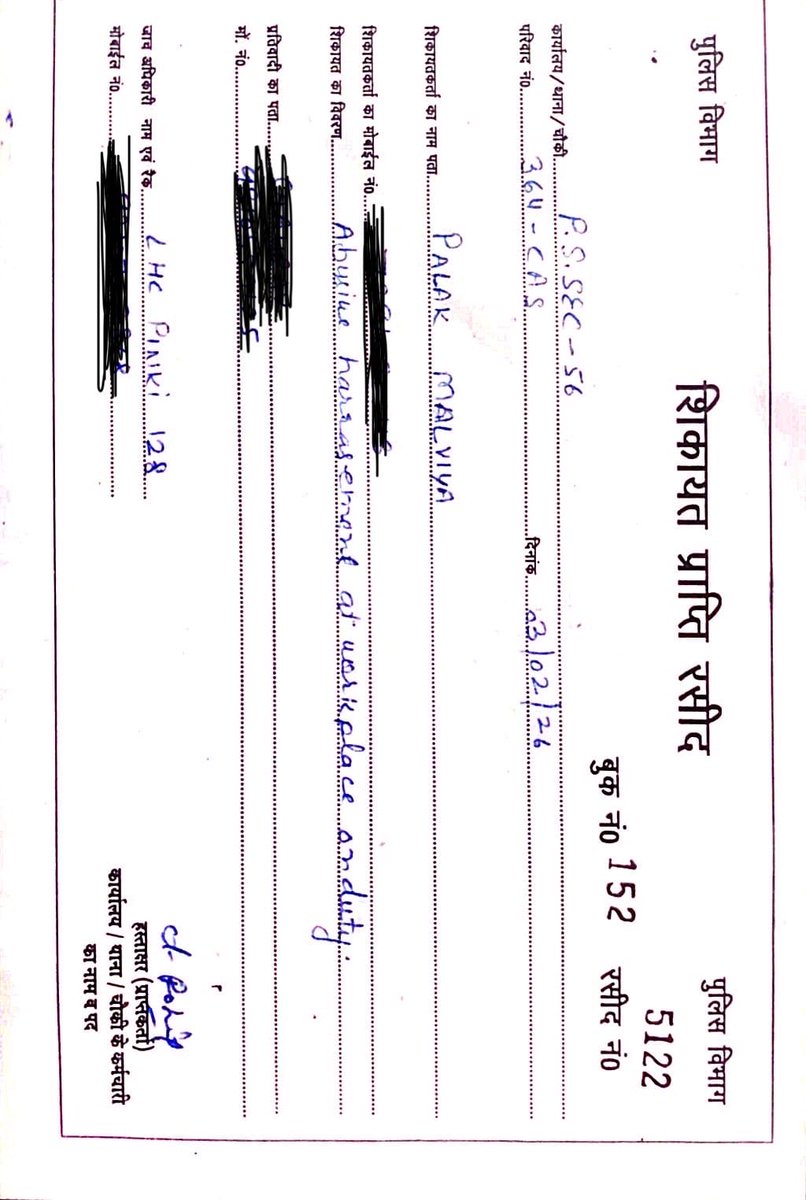 पुलिस विभाग शिकायत प्राप्ति रसीद पुलिस विभाग
बुक नं0 152 रसीद नं0 5122
कार्यालय/थाना/चौकी P.S. SEC-56
परिवाद नं0 364-CAS दिनांक 03/02/26
शिकायतकर्ता का नाम पता PALAK MALVIYA
शिकायतकर्ता का मोबाईल नं0
शिकायत का विवरण harrasement at workplace onduty.
प्रतिवादी का पता
मों. नं0
जाच अधिकारी नाम एवं रैंक LHC PINKI 128
मोबाईल नं0
हस्ताक्षर (प्राप्तकर्ता)
कार्यालय / थाना / चौकी के कर्मचारी
का नाम व पद